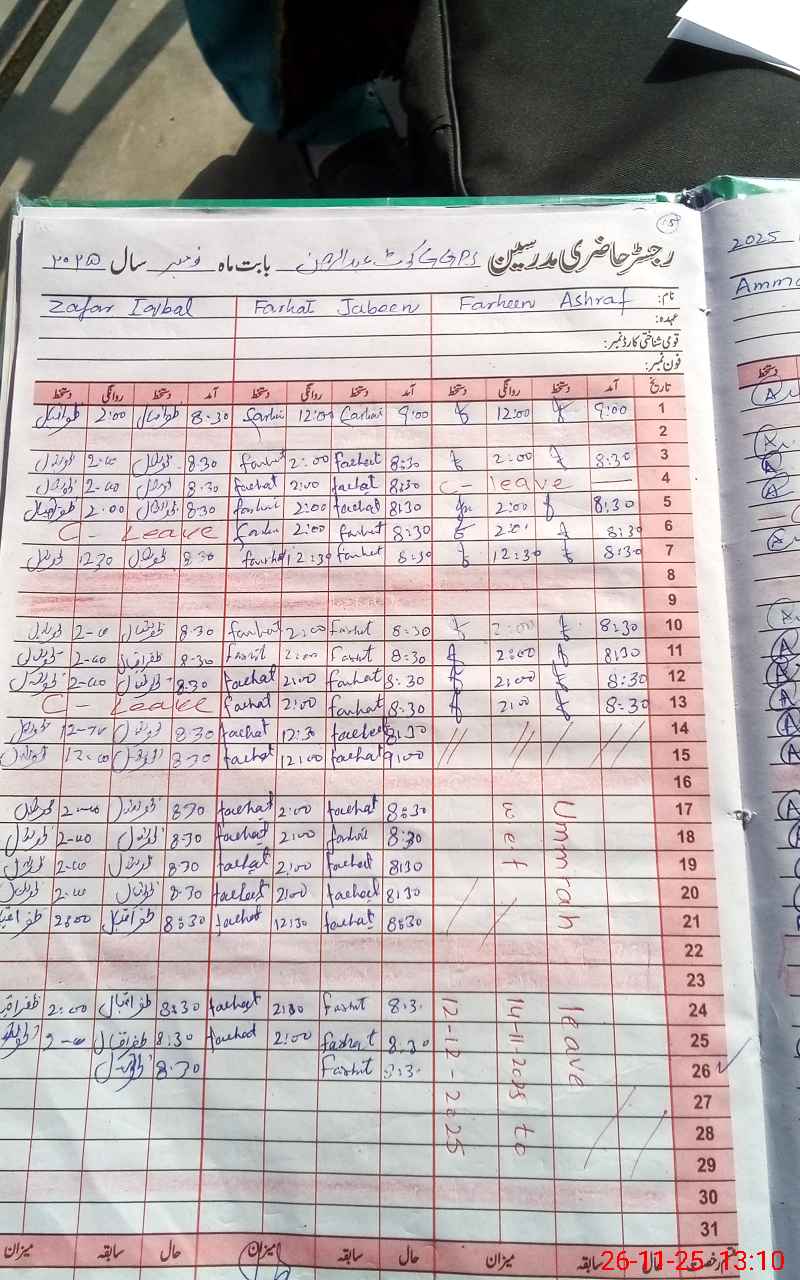 15
رجسٹر حاضری مدرسین GGPS کوٹ عبدالرحمن بابت ماہ نومبر سال ۲۰۲۵
نام: Farheen Ashraf Farhat Jabeen Zafar Iqbal
عہدہ:
قومی شناختی کارڈ نمبر:
فون نمبر:
تاریخ آمد دستخط روانگی دستخط آمد دستخط روانگی دستخط آمد دستخط روانگی دستخط
1 9:00 12:00 9:00 Farhat 12:00 8:30 ظفر اقبال 2:00 ظفر اقبال
2
3 8:30 2:00 8:30 farhat 2:00 farhat 8.30 2-00
4 C- leave 8:30 farhat 2:00 farhat 8.30 2-00
5 8:30 2:00 8:30 farhat 2:00 8.30 ظفر اقبال 2:00 ظفر اقبال
6 8:30 8:30 farhat 2:00 C- Leave
7 8:30 12:30 8:30 farhat 12:30 farhat 8.30 12.30
8
9
10 8:30 2:00 8:30 Farhat 2:00 farhat 8.30 ظفر اقبال 2-00
11 8:30 2:00 8:30 Farhat 2:00 Farhat 8.30 ظفر اقبال 2-00
12 8:30 2:00 8:30 farhat 2:00 farhat 8.30 ظفر اقبال 2-00
13 8:30 2:00 8:30 farhat 2:00 farhat C- Leave
14 8:30 farhat 12:30 farhat 8.30
15 9:00 farhat 12:00 farhat 8.30 12-00
16
17 8:30 farhat 2:00 farhat 8.30 2-00
18 8:30 2:00 farhat 8.30 2-00
19 8:30 farhat 2:00 farhat 8.30 2-00
20 8:30 farhat 2:00 farhat 8.30 2-00
21 8:30 farhat 12:30 farhat 8:30 ظفر اقبال 2:00 ظفر اقبال
22
23
24 8:30 Farhat 2:00 farhat 8:30 ظفر اقبال 2:00 ظفر اقبال
25 8:30 Farhat 2:00 farhat 8:30 ظفر اقبال 2-00
26 8:30 Farhat 8.30 ظفر اقبال
27
28
29
30
31
Ummrah leave
w e f 14-11-2025 to
12-12-2025
رخصت حال سابقہ میزان حال سابقہ میزان حال سابقہ میزان
2025
Amm
دستخط
26-11-25 13:10